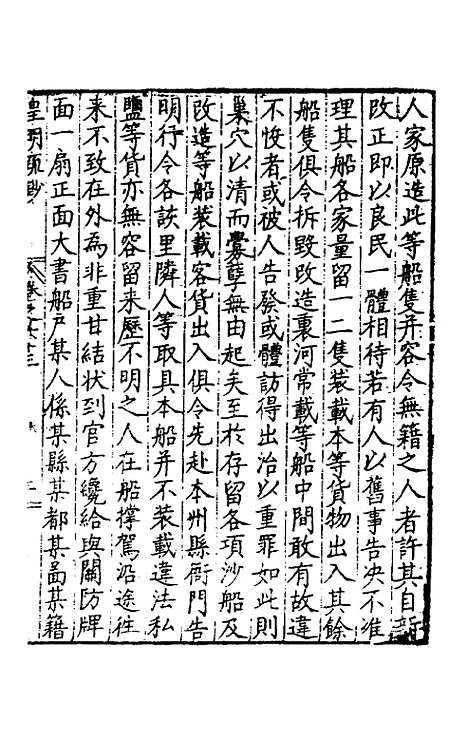 人家原造此等船隻并容令無籍之人者許其自新
改正即以良民一體相待若有人以舊事告决不准
理其船各家量留一二隻裝載本等貨物出入其餘
船隻俱令拆毀改造裏河常載等船中間敢有故違
不悛者或被人告發或體訪得出治以重罪如此則
巢穴以清而釁孽無由起矣至於存留各項沙船及
改造等船裝載客貨出入俱令先赴本州縣衙門告
明行令各該里隣人等取具本船并不裝載違法私
鹽等貨亦無容留來歷不明之人在船撑駕沿途往
来不致在外為非重甘結狀到官方纔給與關防牌
面一扇正面大書船戶某人係某縣某都某啚某籍
皇明疏鈔